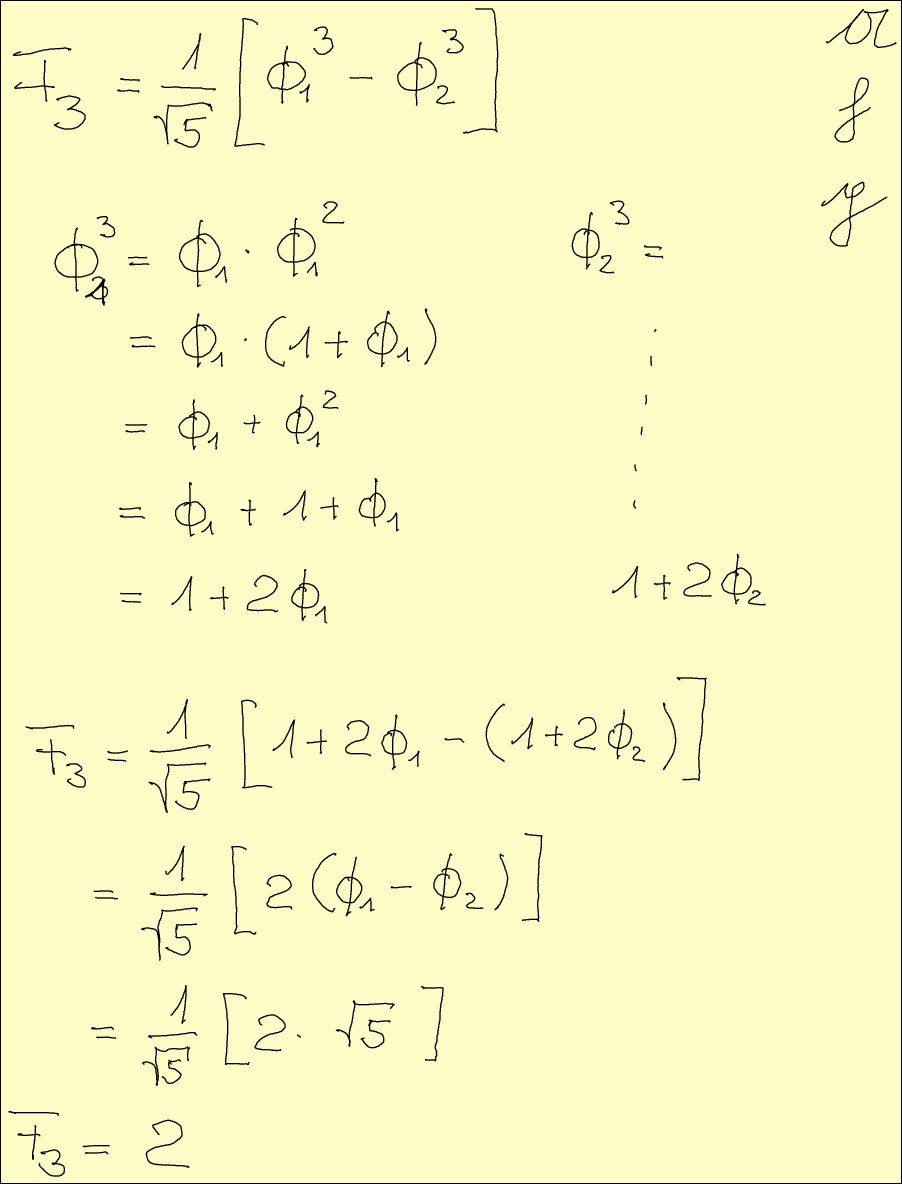 F₃ = 1/√5 [ϕ₁³ − ϕ₂³]
ϕ₁³ = ϕ₁ · ϕ₁²
= ϕ₁ · (1 + ϕ₁)
= ϕ₁ + ϕ₁²
= ϕ₁ + 1 + ϕ₁
= 1 + 2ϕ₁
ϕ₂³ =
1 + 2ϕ₂
F₃ = 1/√5 [1 + 2ϕ₁ − (1 + 2ϕ₂)]
= 1/√5 [2(ϕ₁ − ϕ₂)]
= 1/√5 [2 · √5]
F₃ = 2